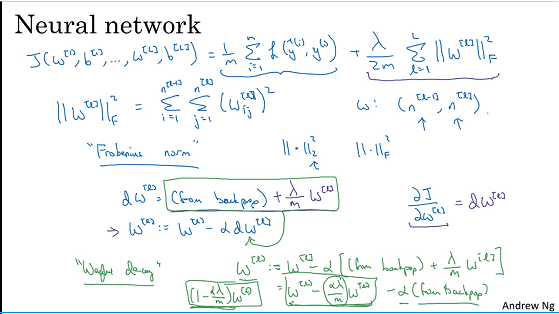 Neural network
J(w^[1], b^[1], ..., w^[L], b^[L]) = 1/m ∑_{i=1}^{m} ℒ(ŷ^(i), y^(i)) + λ/2m ∑_{l=1}^{L} ||w^[l]||²_F
||w^[l]||²_F = ∑_{i=1}^{n^[l-1]} ∑_{j=1}^{n^[l]} (w_ij^[l])²   w: (n^[l-1], n^[l]).
"Frobenius norm"   ||·||²_2   ||·||²_F
dw^[l] = (from backprop) + λ/m w^[l]   ∂J/∂w^[l] = dw^[l]
→ w^[l] := w^[l] - α dw^[l]
"Weight decay"   w^[l] := w^[l] - α [(from backprop) + λ/m w^[l]]
(1 - αλ/m) w^[l]   = w^[l] - αλ/m w^[l] - α (from backprop)
Andrew Ng